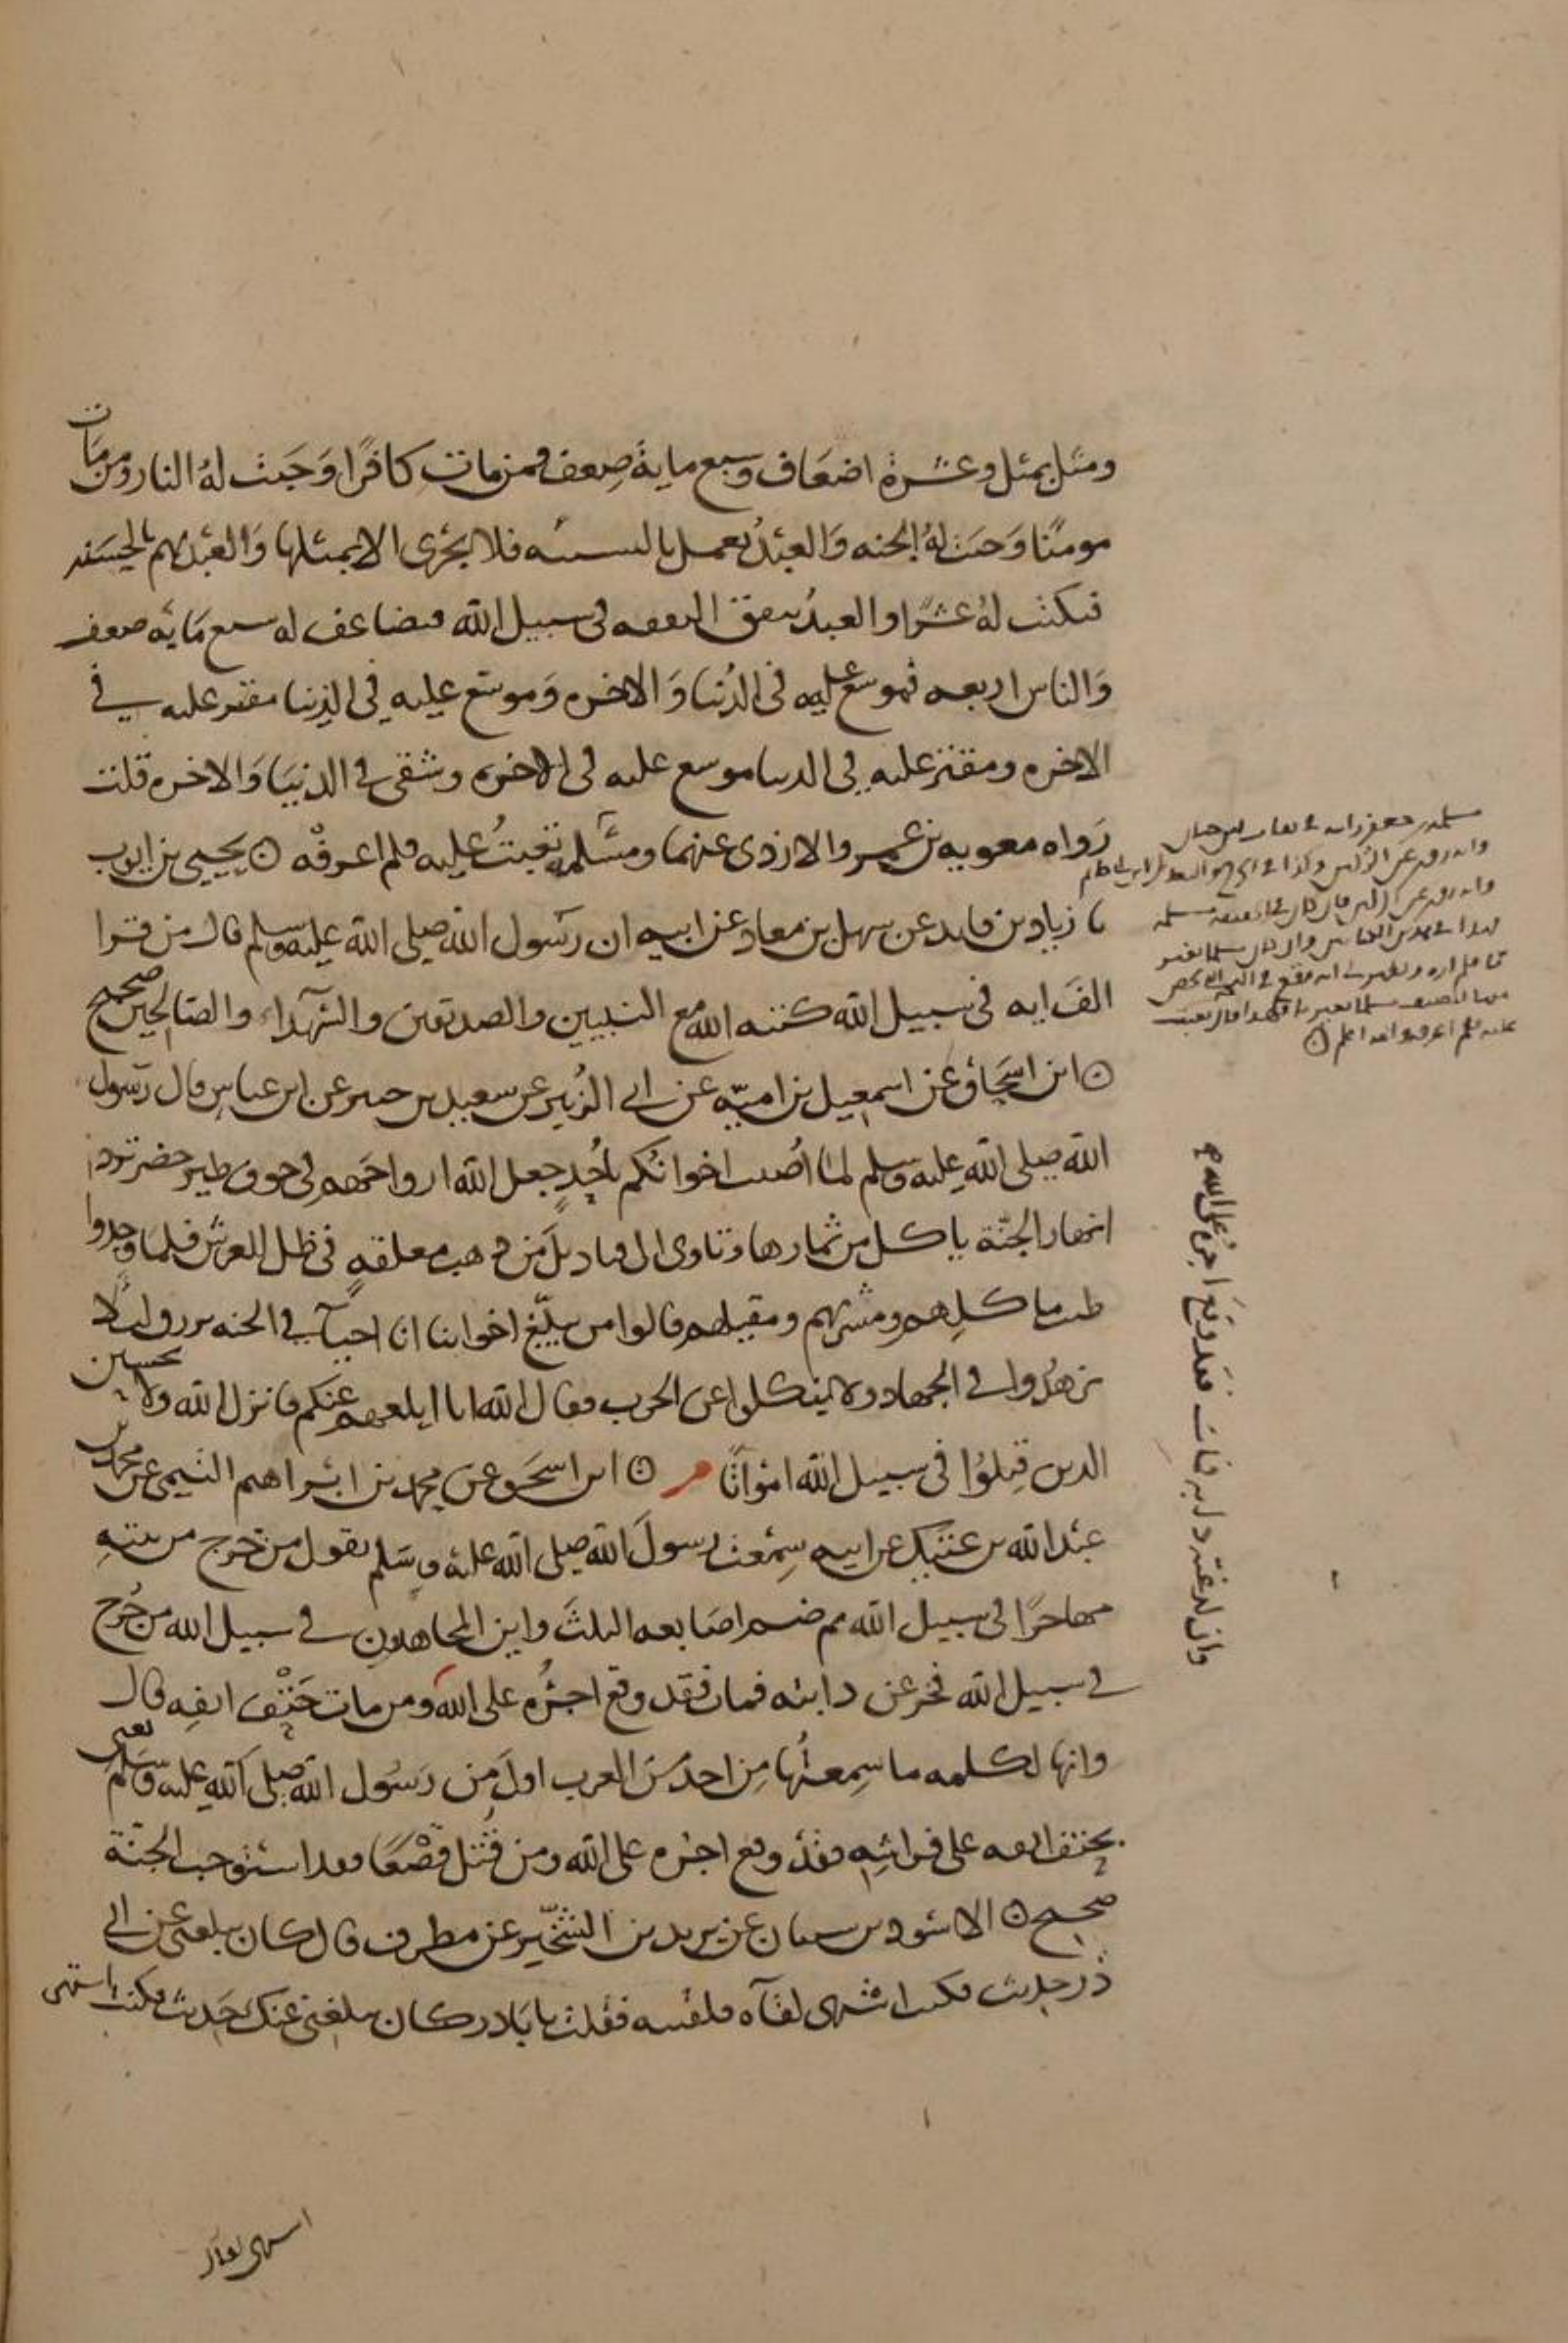 ومثل بمثل وعشرة اضعاف وسبع ماية ضعف فمن مات كافرًا وَجَبت لهُ النار ومن مَات
مومنًا وَجبَت لهُ الجنه وَالعبْدُ يعمل بالسيئه فلا يجْزى الا بمثلها وَالعبْد يهم بالحسَنه
فتكتب لهُ عشْرًا والعبدُ ينفق النفقه فى سبيل الله فيضاعف له سبع مَايه ضعف
وَالناس اربعه فموسع عليه فى الدُنيا وَالاخره وَموسع عليه فى الدنيا مقتر عليه في
الاخره ومقتر عليه فى الدنيا موسع عليه فى الاخره وشقى فى الدنيَا وَالاخره قلت
رَواه معويه بن عمرو والازدى عنهما ومسلمه تعبتُ عليه فلم اعرفْه ○ يحيى بن ايوب
نا زياد بن فايد عن سهل بن معاد عن ابيه ان رسُول الله صلى الله عليه وسلم قال من قرا
الفَ ايه فى سبيل الله كتبه الله مع النبيين والصديقين والشهدآء والصالحين صحيح
○ ابن اسحَاق عن اسمعيل بن اميّه عن ابى الزُبير عن سعيد بن جبير عن ابن عباس قال رَسول
الله صلى الله عليه وسلم لما اُصيب اخوانُكم باُحُدٍ جعل الله ارواحَهم فى جوف طير خضر ترد
انهار الجنّة ياكل من ثمارها وتاوى الى قناديل من ذهب معلقهٍ فى ظل العرش فلما وجدوا
طيب ماكلهم ومشربهم ومقيلهم قالوا من يبلّغ اخواننا انا احيآ فى الجنه نرزق لئلا
يزهدُوا فى الجهاد ولا ينكلوا عن الحرب فقال الله انا ابلغهم عنكم فانزل الله ولا تحسبن
الذين قتِلوُا فى سبيل الله امْواتًا ○ ابن اسحَق عن محمد بن ابْراهيم التيمى عن محمد بن
عبْد الله بن عتيك عن ابيه سِمعت رسولَ الله صلى الله عليه وسَلم يقول من خرج من بيته
مهاجرًا فى سبيل الله ثم ضم اصَابعه الثلثَ واين المجاهدون فى سبيل الله من خرج
فى سبيل الله فخر عن دابته فمات فقد وقع اجْرُه على الله ومن مات حَتْف انفِه قال
وانها لكلمه ما سِمعتُها مِن احد من العرب اولَ من رَسُول الله صلى الله عليه وسَلم يعنى
بحتف انفه على فراشِه فقدْ وقع اجْره على الله ومن قُتل قَعْصًا فقد استوجب الجنّة
صحيح ○ الاسْود بن شيبان عن يزيد بن الشخّير عن مطرف قال كان يبلغنى عن ابى
ذر حديث فكنت اشتهى لقآه فلقيته فقلت يا بَاذر كان يبلغنى عنكَ حَديث فكنت اشتهى
اشتهى لقاك
وان لدغته دابه فمات فقد وقعَ اجرُه على الله